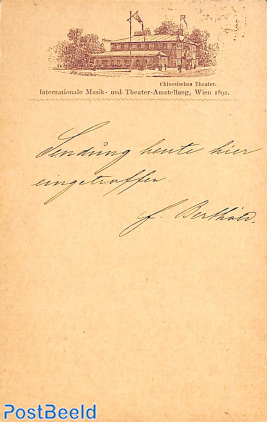 Chinesisches Theater.
Internationale Musik- und Theater-Ausstellung, Wien 1892.
Sendung heute hier
eingetroffen
f. Berthold.
PostBeeld